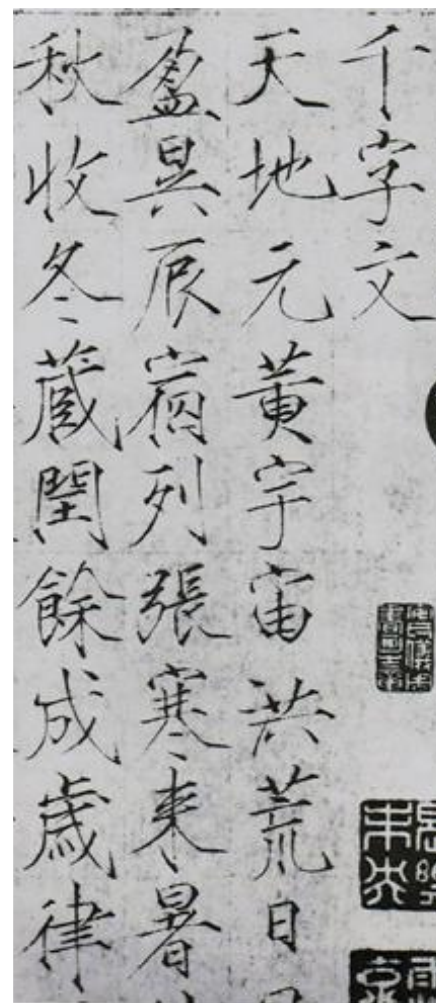 千字文
天地元黃宇宙洪荒日
盈昃辰宿列張寒來暑
秋收冬藏閏餘成歲律